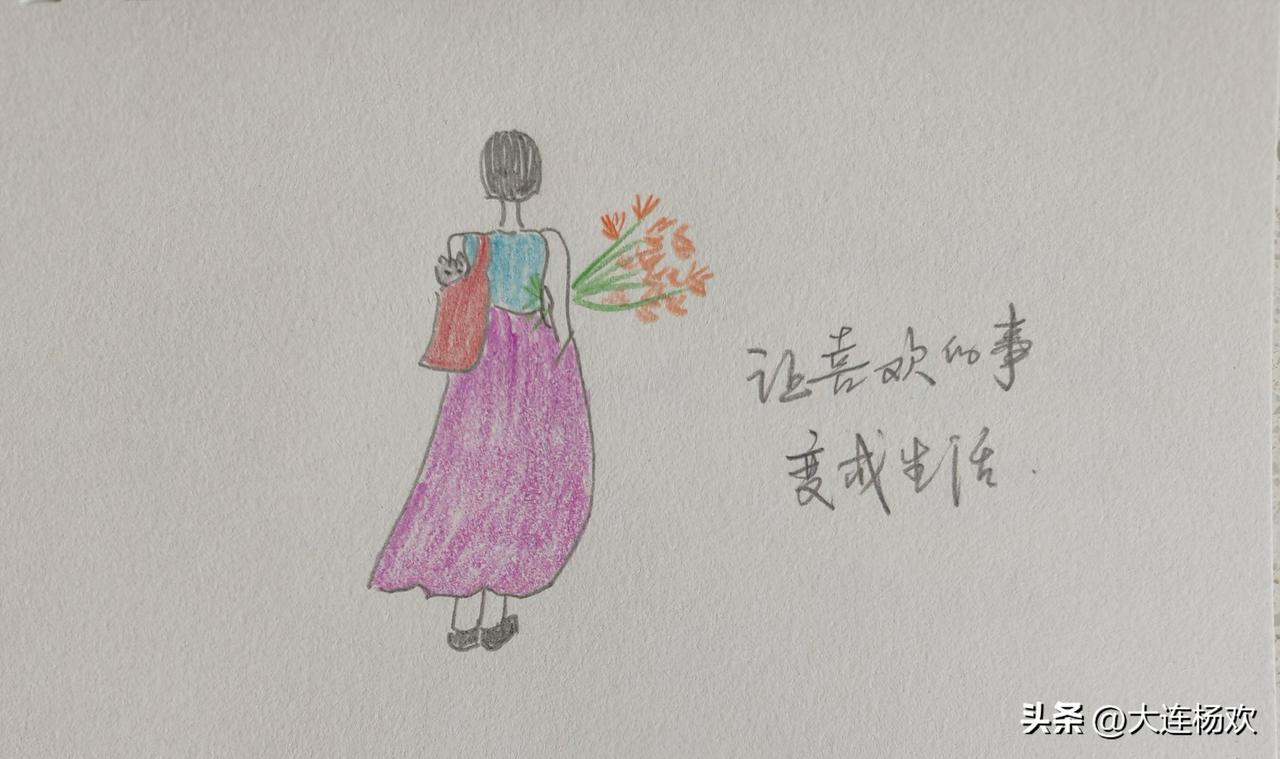 让喜欢的事
变成生活.
头条 @大连杨欢